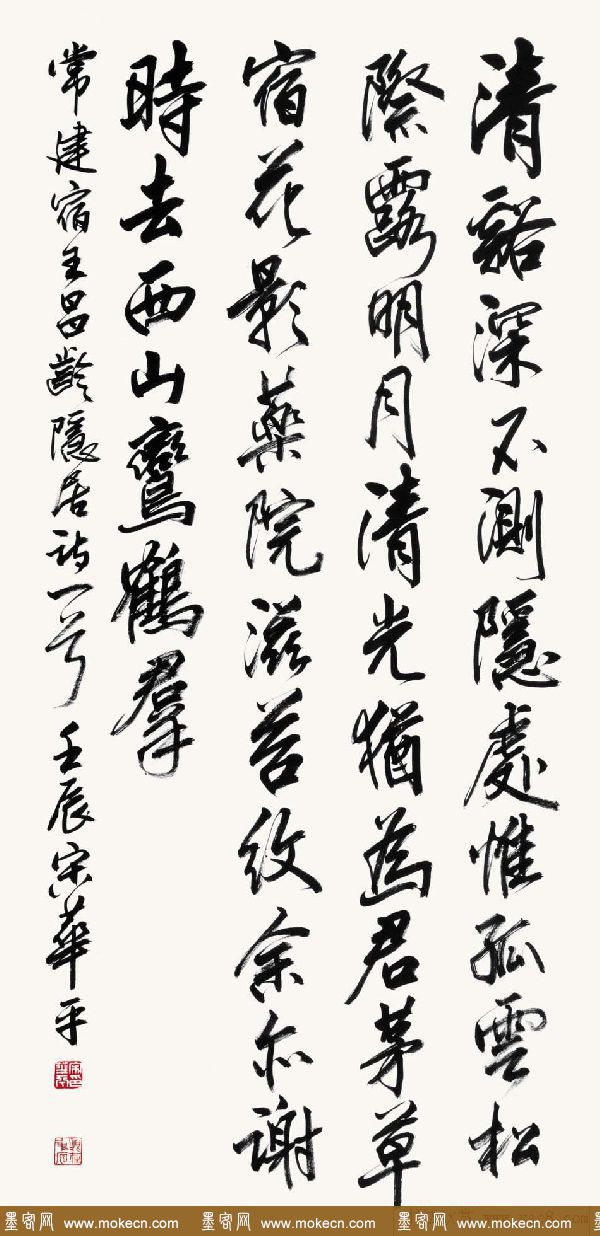 清谿深不測隱處惟孤雲松
際露明月清光猶為君茅草
宿花影藥院滋苔紋余亦謝
時去西山鸞鶴羣
常建宿王昌齡隱居詩一首 壬辰宋華平
墨客网 www.mokecn.com 墨客网 www.mokecn.com 墨客网 www.mokecn.com